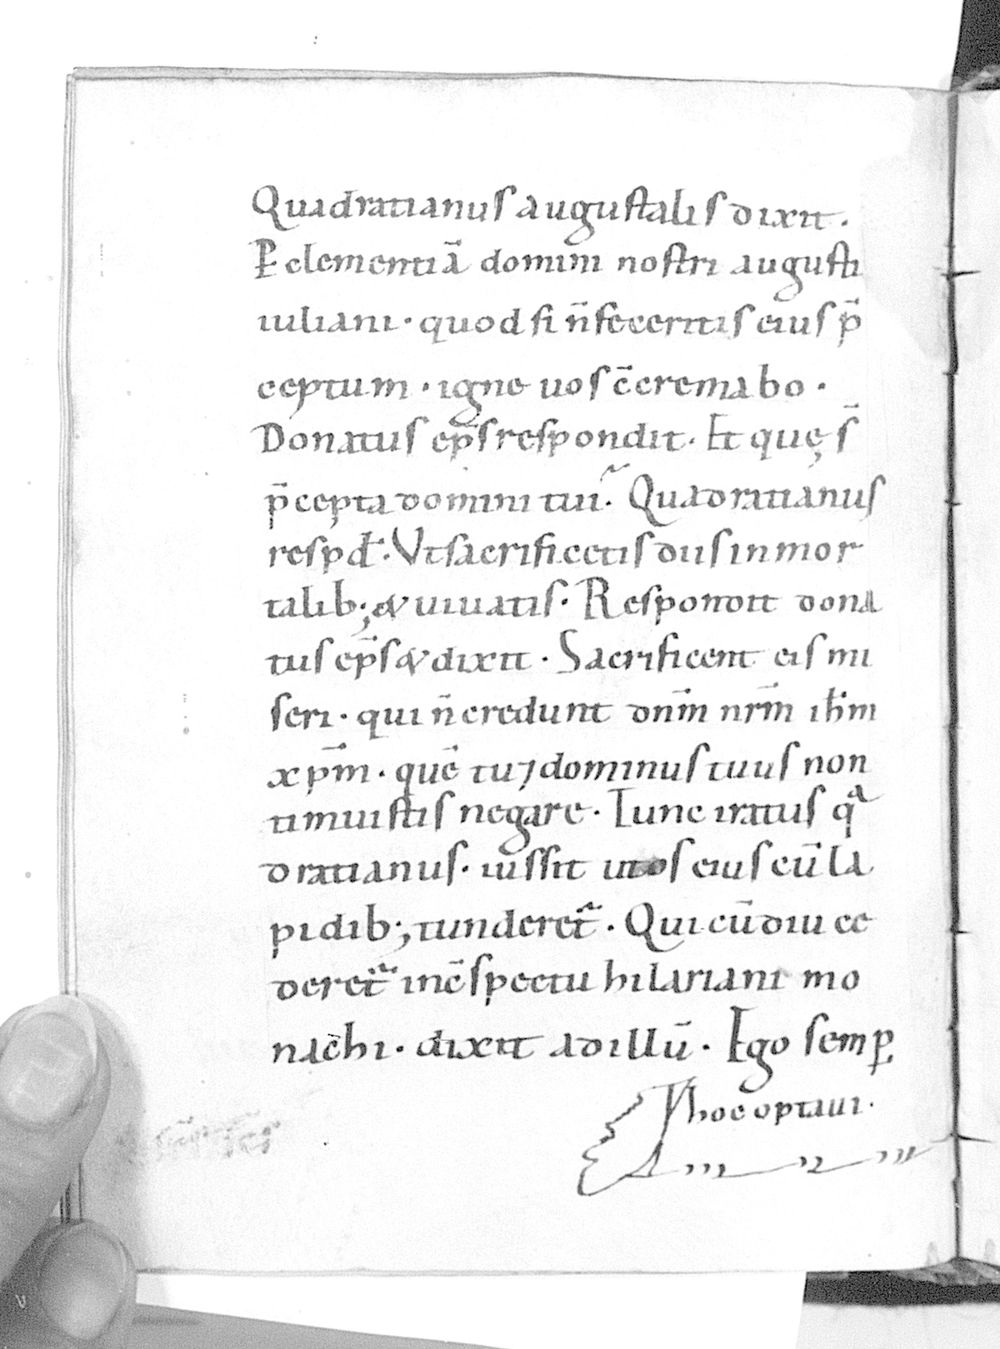 Quadratianus augustalis dixit.
P clementiā domini nostri augusti
iuliani · quod si n̄ feceritis eius p̄
ceptum · igne uos c̄cremabo ·
Donatus ep̄s respondit. Et quę s̄
p̄cepta domini tui. Quadratianus
resp đ. Vt sacrificetis diis inmor
talib; & uiuatis. Respondit dona
tus ep̄s & dixit · Sacrificent eis mi
seri · qui n̄ credunt dn̄m nr̄m ih̄m
xp̄m · quē tu ⁊ dominus tuus non
timuistis negare · Tunc iratus qͣ
dratianus. iussit ut os eius cū la
pidib; tunderet᷑. Qui cū diu ce
deret᷑ in c̄spectu hilariani mo
nachi · dixit ad illū. Ego semꝑ
hoc optaui.